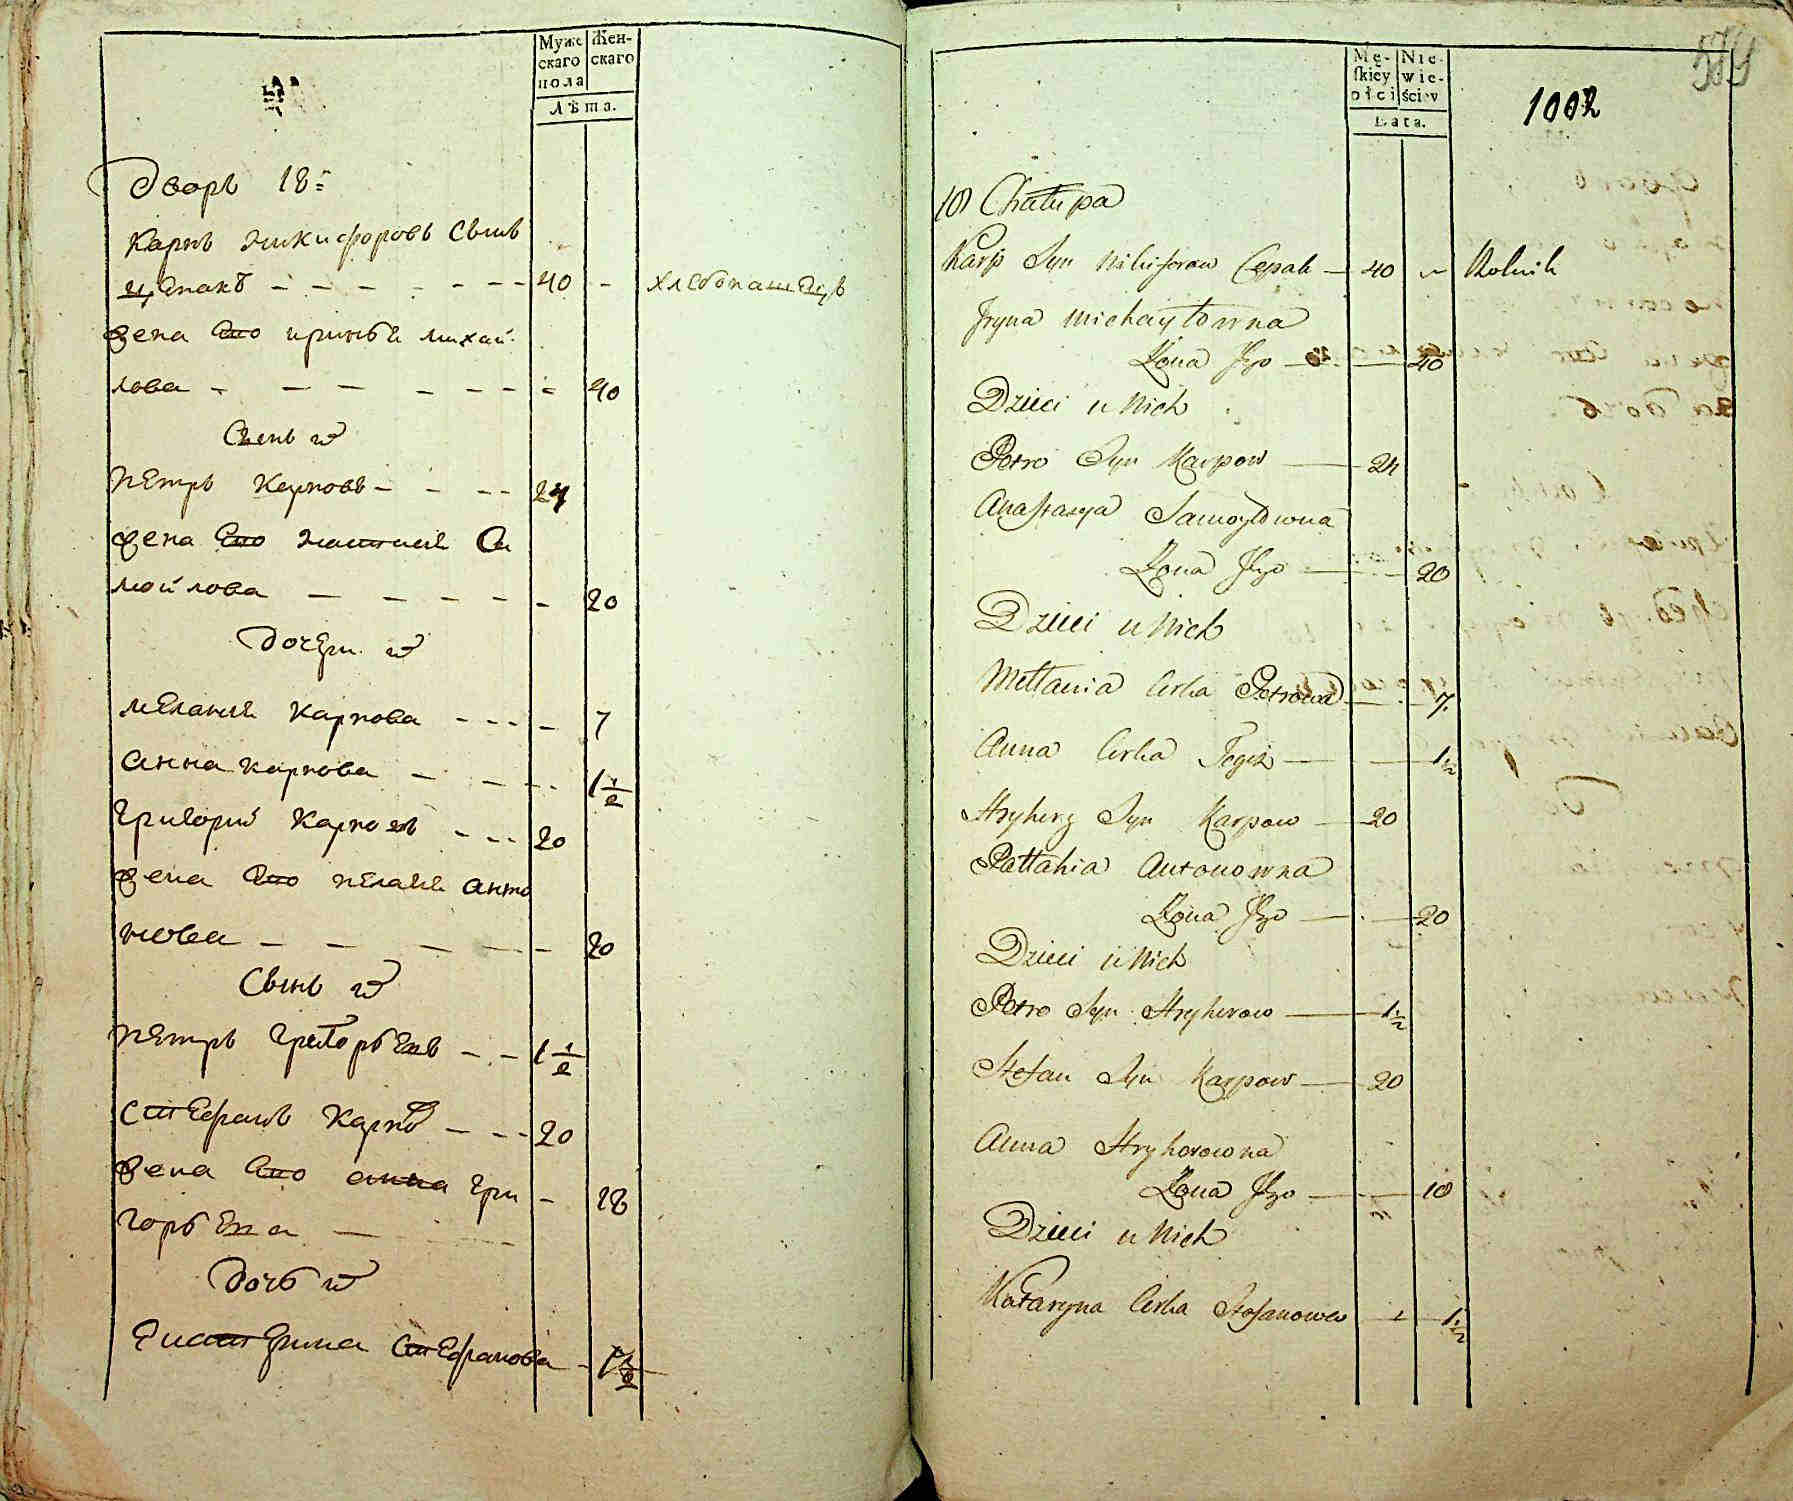 Муже
скаго
пола
Жен-
скаго
Лѣта.
Дворъ 18:
Карпъ Никифоровъ сынъ
Цепакъ - - - - - - - 40 - хлебопашецъ
жена Его иринья михай
лова - - - - - - - 40
Сынъ их
Петръ Карповъ - - - - 24
жена Его настасия Са
мойлова - - - - - - 20
Дочери их
Мелания Карпова - - - - 7
Анна карпова - - - - 1 1/2
Григорий Карповъ - - - 20
жена Его пелагея анто
нова - - - - - 20
Сынъ их
Петръ Григорьевъ - - - 1 1/2
Стефанъ Карповъ - - - 20
жена Его анна Гри - 18
горьева -
Дочь их
Екатерина Стефанова - 1 1/2
Mę-
skiey
płci
Nie-
wie-
ściey
Lata.
1002
579
18 Chałupa
Karp Syn Nikiforow Cepak — 40 — Rolnik
Jryna Michayłowna
Żona Jego — 40
Dzieci u Nich
Petro Syn Karpow — 24
Anastasya Samoyłowna
Żona Jego — 20
Dzieci u Nich
Mełłania Corka Petrowa — 7.
Anna Corka Tegoż — 1 1/2
Hryhory Syn Karpow — 20
Pałłahia Antonowna
Żona Jego — 20
Dzieci u Nich
Petro Syn Hryhorow — 1 1/2
Stefan Syn Karpow — 20
Anna Hryhorowna
Żona Jego — 18
Dzieci u Nich
Kataryna Corka Stefanowa — 1 1/2